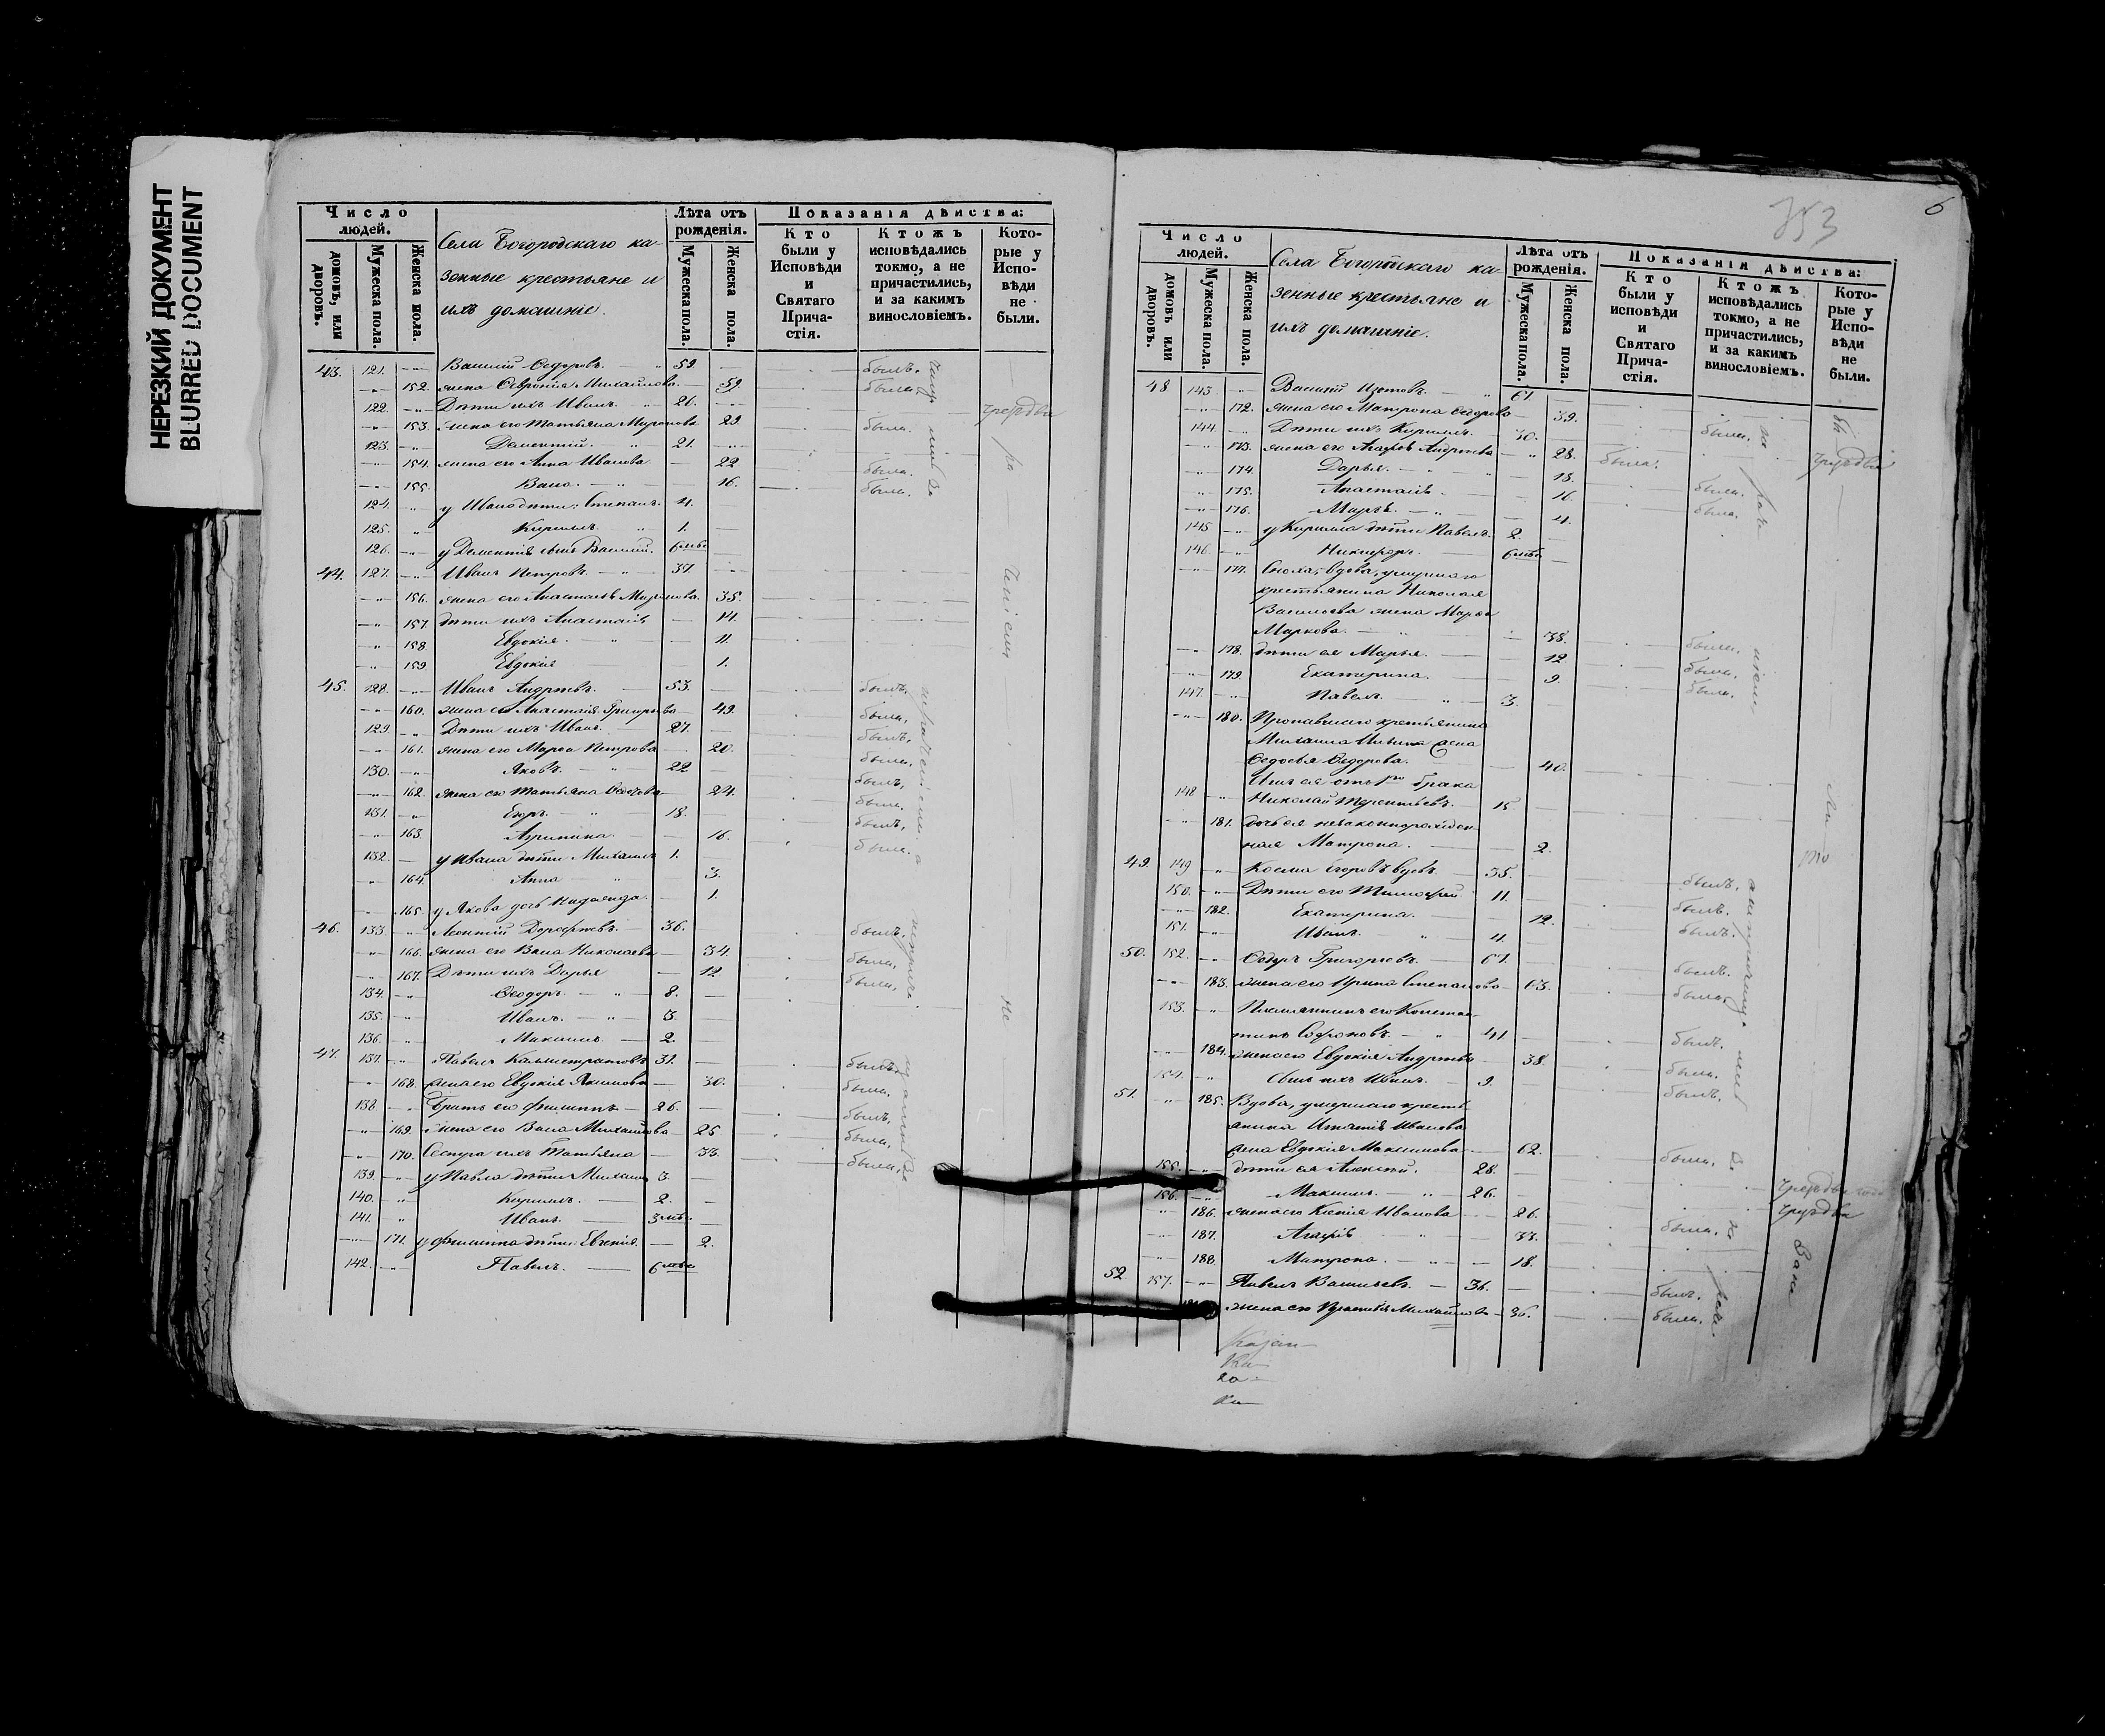 НЕРЕЗКИЙ ДОКУМЕНТ
BLURRED DOCUMENT
Число людей.
домовъ, или дворовъ.
Мужеска пола.
Женска пола.
Села Богородскаго ка-
зенные крестьяне и
ихъ домашніе.
Лѣта отъ рожденія.
Мужеска пола.
Женска пола.
Показанія дѣйства:
Кто были у Исповѣди и Святаго Прича-стія.
Ктожъ исповѣдались токмо, а не причастились, и за какимъ винословіемъ.
Кото-рые у Испо-вѣди не были.
43. 121. Василій Ѳедоровъ. 59. былъ.
152. жена Февронія Михайлова. 59. была.
122. Дѣти ихъ Иванъ 26.
153. жена его Татьяна Миронова 29. была.
123. Дементій. 21.
154. жена его Анна Иванова 22 была.
155. Васса. 16. была.
124. у Ивана дѣти: Степанъ. 4.
125. Кириллъ. 1.
126. у Дементія сынъ Василій. 6
44. 127. Иванъ Петровъ. 37.
156. жена его Анастасія 35.
157 дѣти ихъ Анастасія 14.
158 Евдокія. 11.
159 Евдокія 1.
45. 128. Иванъ Андреевъ. 53. былъ.
160. жена его Анастасія Григорьева 49. была,
129. Дѣти ихъ Иванъ. 27. былъ,
161. жена его Марѳа Петрова 20. была,
130. Яковъ. 22 былъ,
162. жена его Татьяна 24. была.
131. Егоръ. 18. былъ,
163. Агрипина. 16. была.
132. у Ивана дѣти Михаилъ 1.
164. Анна 3.
165. у Якова дочь Надежда. 1.
46. 133. Леонтій Дороѳеевъ. 36. былъ.
166. жена его Васса Николаева 34. была,
167. Дѣти ихъ Дарья 12 была,
134. Ѳеодоръ. 8.
135. Иванъ. 3.
136. Михаилъ. 2.
47. 137. Павелъ Каллистратовъ 31. былъ,
168. жена его Евдокія Якимова 30. была,
138. Братъ его Филиппъ 26. былъ,
169. жена его Васса Михайлова 25 была,
170. Сестра ихъ Татьяна 33. была,
139. у Павла дѣти Михаилъ 3.
140. Кириллъ. 2.
141. Иванъ. 3
171. у Филиппа дѣти: Евгенія. 2.
142. Павелъ. 6
353
6
Число людей.
домовъ или дворовъ.
Мужеска пола.
Женска пола.
Села Богородскаго ка-
зенные крестьяне и
ихъ домашніе.
Лѣта отъ рожденія.
Мужеска пола.
Женска пола.
Показанія дѣйства:
Кто были у исповѣди и Святаго Прича-стія.
Ктожъ исповѣдались токмо, а не причастились, и за какимъ винословіемъ.
Кото-рые у Испо-вѣди не были.
48 143. Василій Изотовъ. 61
172. жена его Матрона Ѳедорова 59.
144. Дѣти ихъ Кириллъ. 30. была.
173. жена его Агаѳья Андреева 28. была.
174. Дарья. 18.
175. Анастасія 16. была.
176. Марѳа. 4. была.
145 у Кирилла дѣти Павелъ. 2.
146. Никифоръ. 6
177. Сноха, вдова, умершаго
крестьянина Николая
Васильева жена Марѳа
Маркова. 38. была.
178. дѣти ея Марья. 12 была,
179. Екатерина. 9. была.
147. Павелъ. 3.
180. Пропавшаго крестьянина
Михаила жена
Ѳедосья Ѳедорова. 40.
Сынъ ея отъ 1го брака
148 Николай Терентьевъ. 15
181. дочь ея незаконнорожден-
ная Матрона. 2.
49. 149 Косма Егоровъ вдовъ. 35. былъ.
150. Дѣти его Тимоѳей 11. былъ.
182. Екатерина. 12. былъ.
151. Иванъ. 4.
50. 152. Ѳедоръ Григорьевъ. 61. былъ.
183. жена его Ирина Степанова 63. была.
153. Племянникъ его Констан-
тинъ Софроновъ. 41 былъ.
184. жена его Евдокія Андреева 38. была.
154. сынъ ихъ Иванъ. 9. былъ.
51. 185. Вдова, умершаго кресть-
янина Игнатія Иванова
жена Евдокія Максимова 62. была.
155. дѣти ея Алексѣй. 28.
156. Максимъ. 26.
186. жена его Ксенія Иванова 26. была.
187. Агафія 33.
188. Матрона. 18.
52. 157. Павелъ Васильевъ. 36. былъ.
жена его Михайлова 36. была.